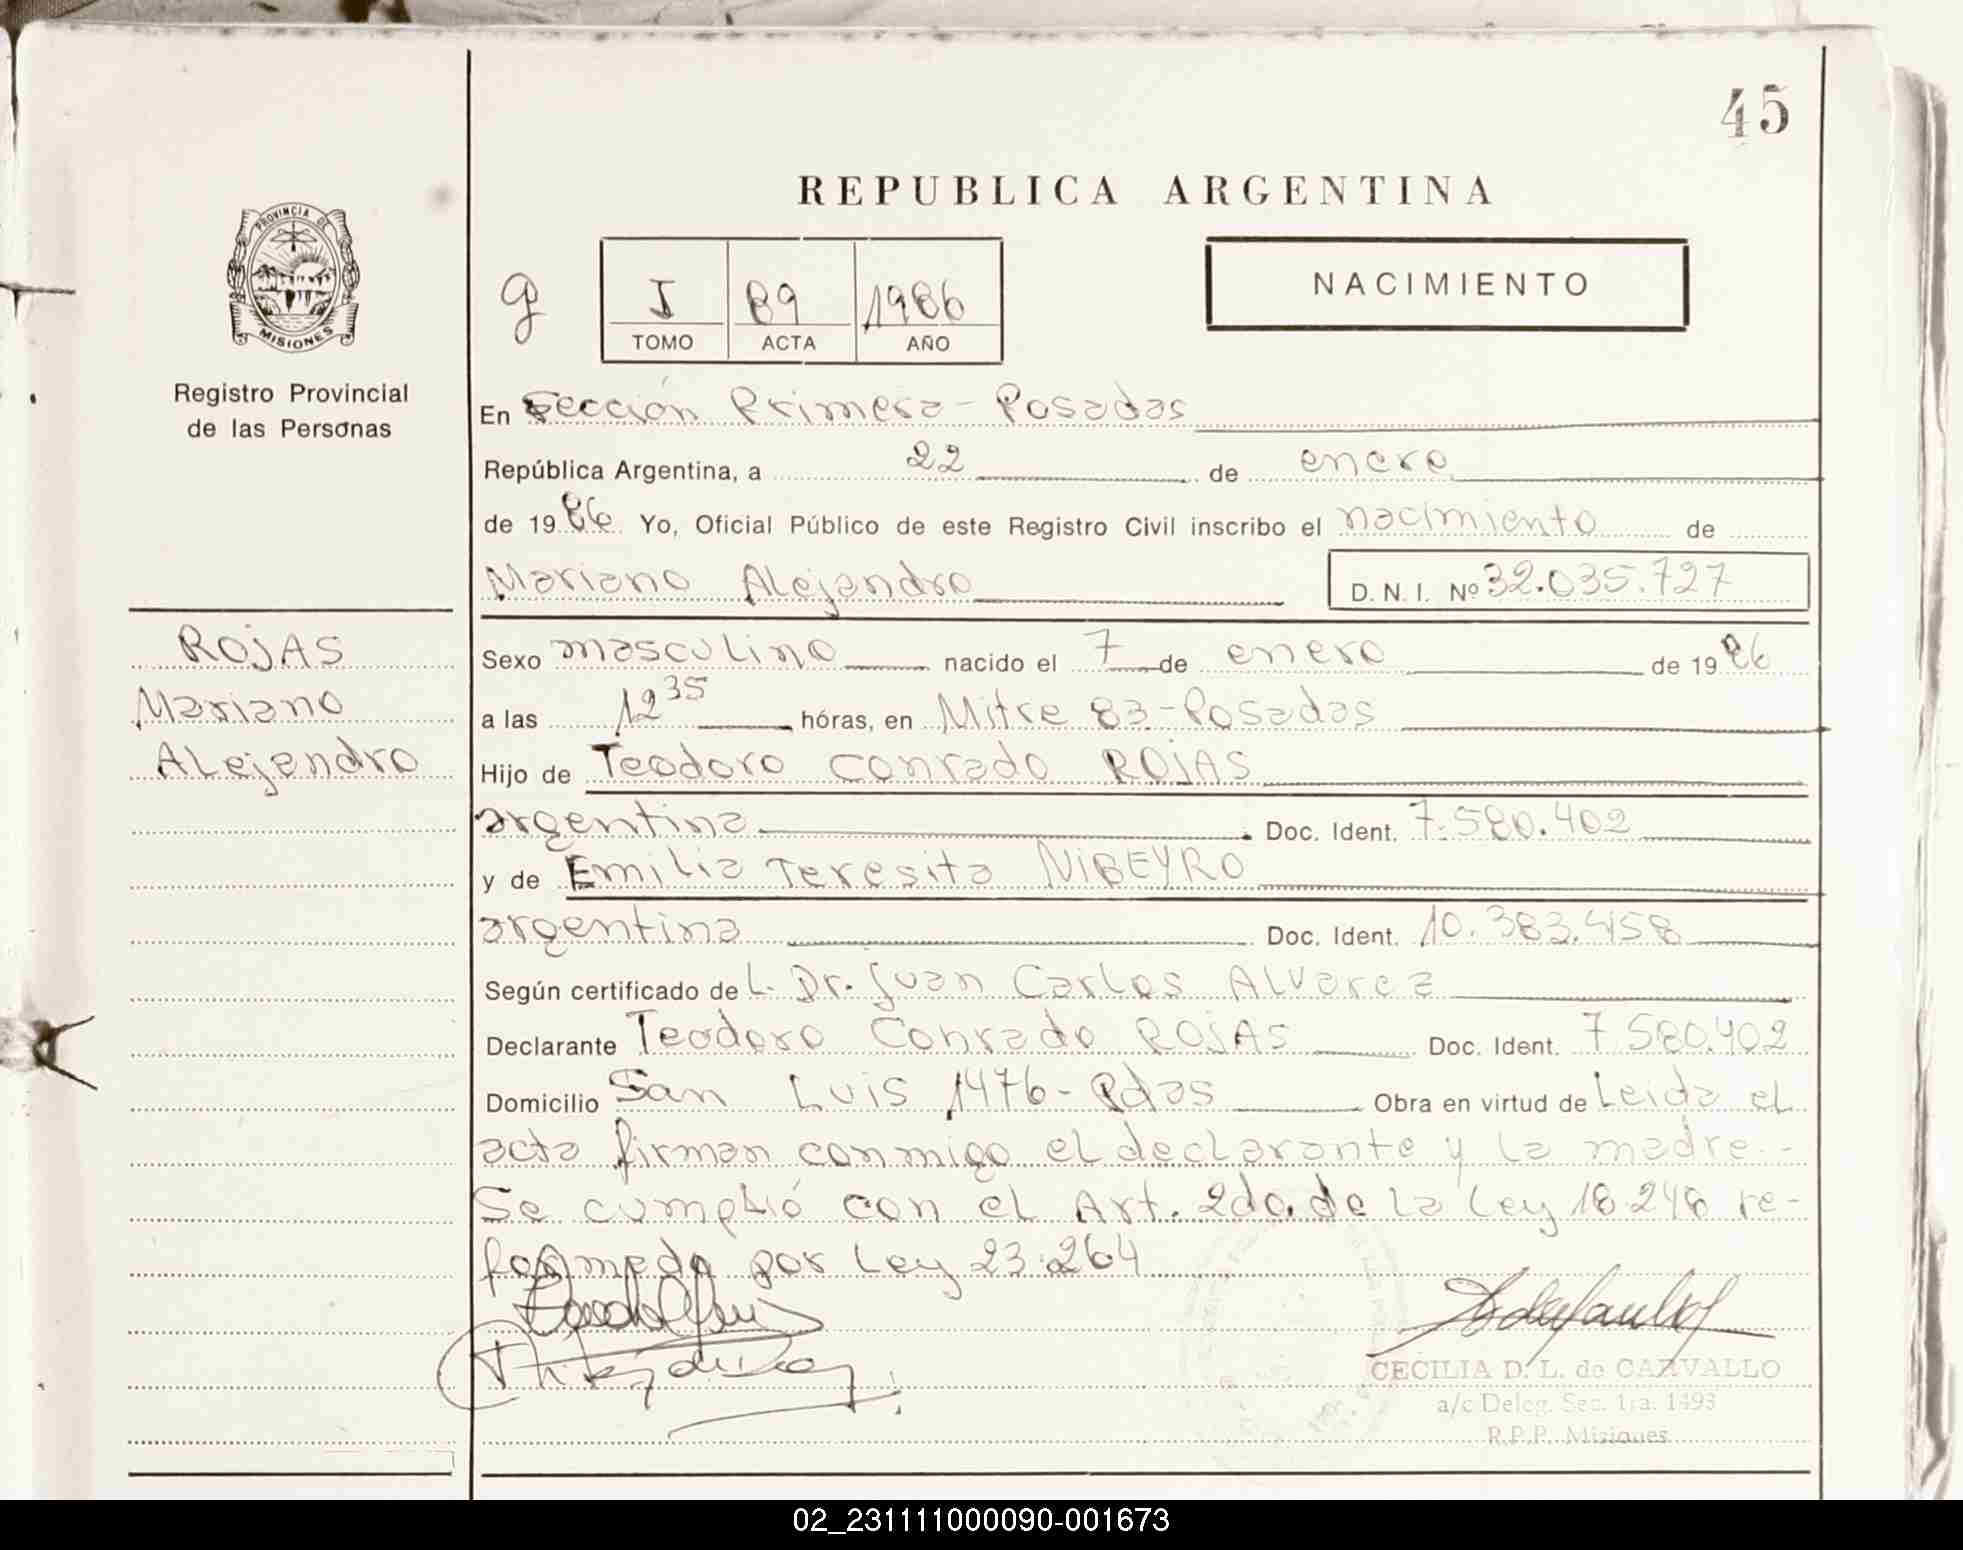 45
REPUBLICA ARGENTINA
PROVINCIA DE
MISIONES
Registro Provincial
de las Personas
g
I 89 1986
TOMO ACTA AÑO
NACIMIENTO
En Sección Primera - Posadas
República Argentina, a 22 de enero
de 1986 Yo, Oficial Público de este Registro Civil inscribo el nacimiento de
Mariano Alejandro D. N. I. Nº 32.035.727
ROJAS
Mariano
Alejandro
Sexo masculino nacido el 7 de enero de 1986
a las 12 35 hóras, en Mitre 83 - Posadas
Hijo de Teodoro Conrado ROJAS
argentina Doc. Ident. 7.580.402
y de Emilia Teresita NIBEYRO
argentina Doc. Ident. 10.383.458
Según certificado de L. Dr. Juan Carlos Alvarez
Declarante Teodoro Conrado ROJAS Doc. Ident. 7.580.402
Domicilio San Luis 1476 - Pdas Obra en virtud de Leida el
acta firman conmigo el declarante y la madre. -
Se cumplió con el Art. 2do. de la Ley 18.248 re-
formada por Ley 23.264
CECILIA D. L. de CARVALLO
a/c Deleg. Sec. 1ra. 1493
R.P.P. Misiones
02_231111000090-001673